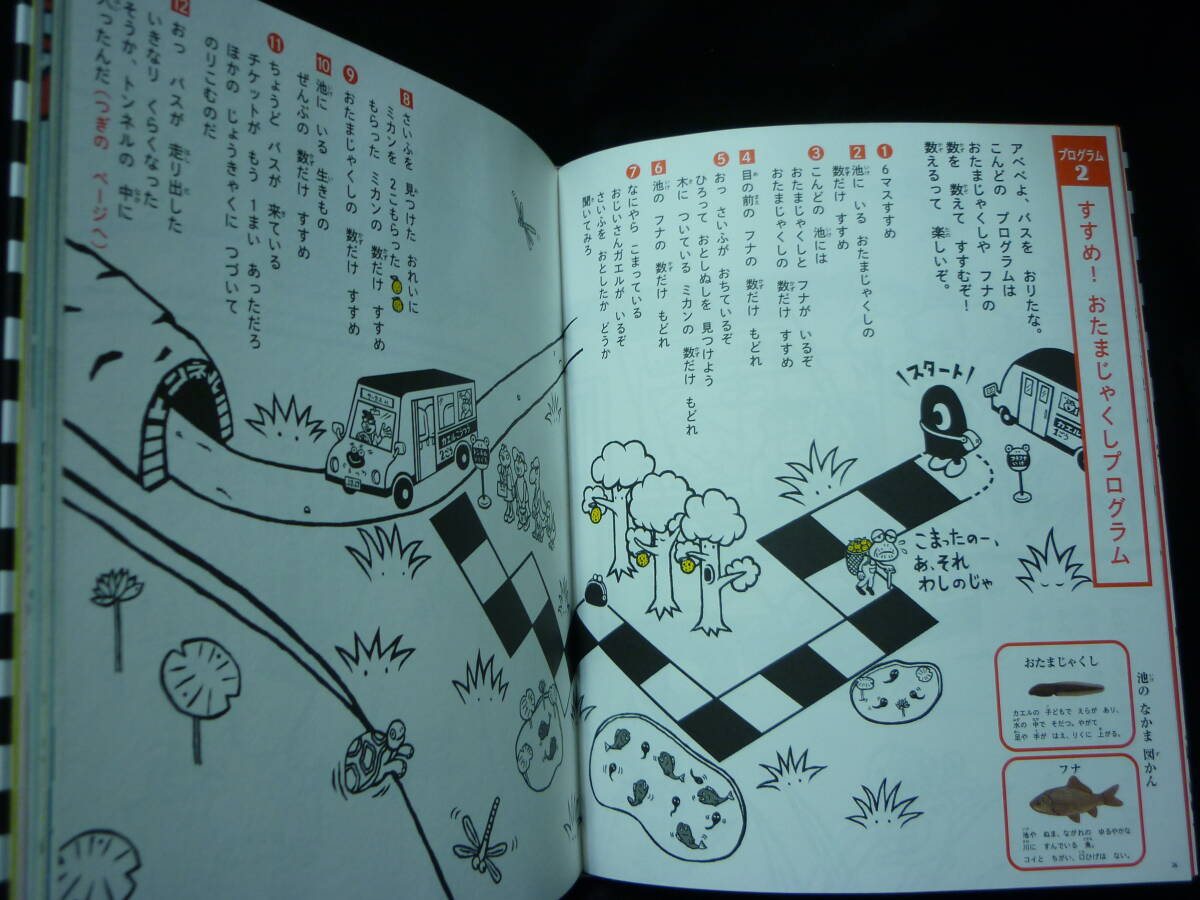 プログラム
2
すすめ！ おたまじゃくしプログラム
アベベよ、バスを おりたな。
こんどの プログラムは
おたまじゃくしや フナの
数を 数えて すすむぞ！
数えるって 楽しいぞ。
1 6マスすすめ
2 池に いる おたまじゃくしの
数だけ すすめ
3 こんどの 池には
おたまじゃくしと フナが いるぞ
おたまじゃくしの 数だけ すすめ
4 目の前の フナの 数だけ もどれ
5 おっ さいふが おちているぞ
ひろって おとしぬしを 見つけよう
木に ついている ミカンの 数だけ もどれ
6 池の フナの 数だけ もどれ
7 なにやら こまっている
おじいさんガエルが いるぞ
さいふを おとしたか どうか
聞いてみろ
8 さいふを 見つけた おれいに
ミカンを 2こもらった
もらった ミカンの 数だけ すすめ
9 おたまじゃくしの 数だけ すすめ
10 池に いる 生きもの
ぜんぶの 数だけ すすめ
11 ちょうど バスが 来ている
チケットが もう 1まい あっただろ
ほかの じょうきゃくに つづいて
のりこむのだ
12 おっ バスが 走り出した
いきなり くらくなった
そうか、トンネルの 中に
入ったんだ（つぎの ページへ）
スタート！
カエル
2ごう
こまったのー、
あ、それ
わしのじゃ
トンネル
カエルこうつう
2ごう
池の なかま 図かん
おたまじゃくし
カエルの 子どもで えらが あり、
水の 中で そだつ。やがて
足や 手が はえ、りくに 上がる。
フナ
池や ぬま、ながれの ゆるやかな
川に すんでいる 魚。
コイと ちがい、口ひげは ない。